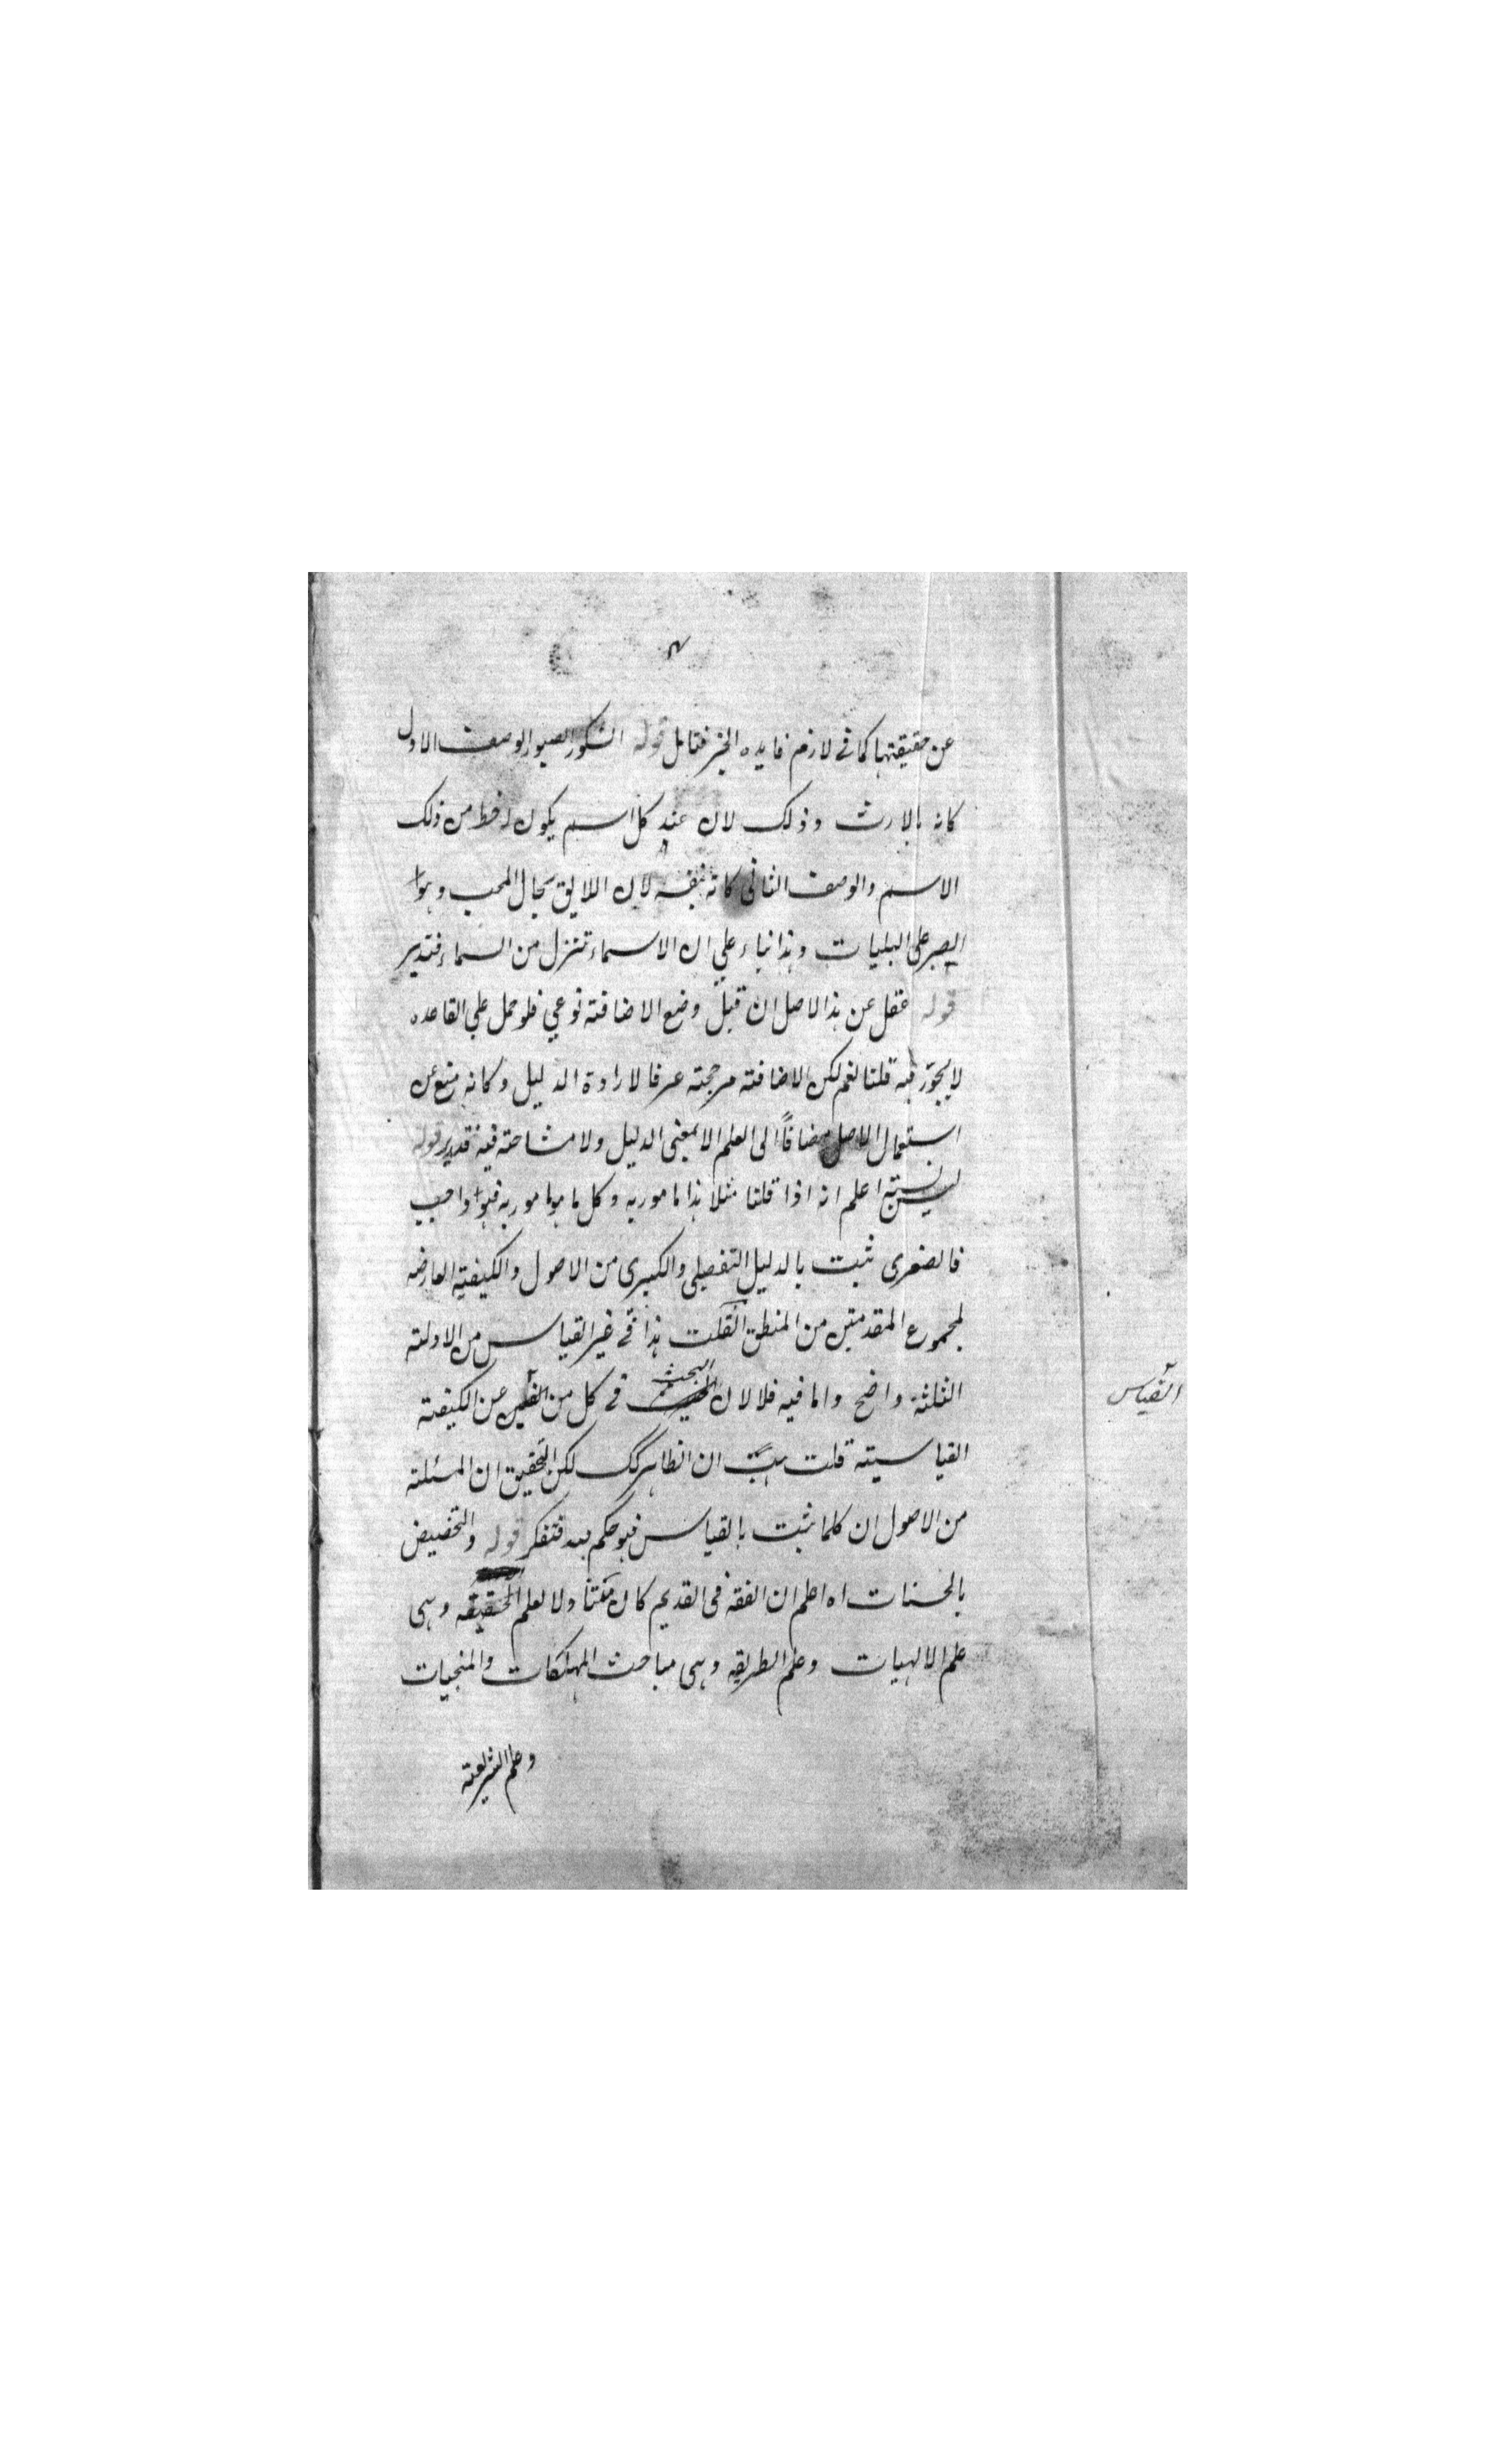 عن حقيقتها كما فى لازم فايده الخبر فتامل قوله الشكور الصبور الوصف الاول
كانه بالارث وذلك لان عند كل اسم يكون له حظ من ذلك
الاسم والوصف الثانى كانه بنفسه لان اللايق بحال المحب وهو
الصبر على البليات وهذا بناء على ان الاسماء تنزل من السماء فتدبر
قوله غفل عن هذا الاصل ان قيل وضع الاضافة نوعي فلو حمل على القاعده
لا يجوز فيه قلنا نعم لكن الاضافة مرجحة عرفا لارادة الدليل وكانه منع عن
استعمال الاصل مضافاً الى العلم الا بمعنى الدليل ولا مشاحة فيه فتدبر قوله
اعلم انه اذا قلنا مثلا هذا مامور به وكل ما هو مامور به فهو واجب
فالصغرى ثبت بالدليل التفصيلى والكبرى من الاصول والكيفية العارضه
لمجموع المقدمتين من المنطق ان قلت هذا فى غير القياس من الادلة
الثلثة واضح واما فيه فلا لان البحث فى كل من عن الكيفية
القياسية قلت هب ان الظاهر لكن التحقيق ان المسئلة
من الاصول ان كلما ثبت بالقياس فهو حكم فتفكر قوله والتخصيص
بالحسنات اه اعلم ان الفقه فى القديم كان متناولا لعلم الحقيقه وهى
علم الالهيات وعلم الطريقه وهى مباحث المهلكات والمنجيات
وعلم الشريعة
القياس